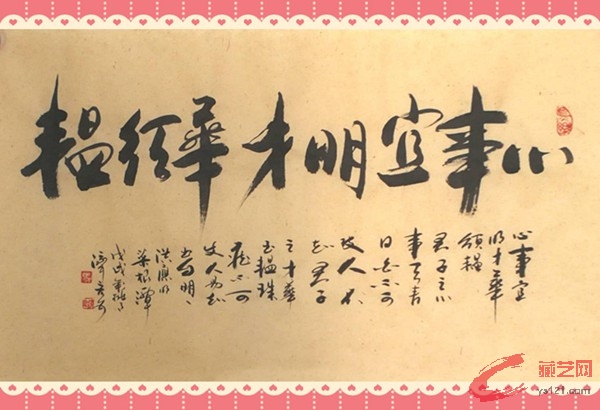 心事宜明才華須韞
心事宜
明才華
須韞
君子之心
事天青
日白不可
使人不
知君子
之才華
玉韞珠
藏不可
使人易知
洪應明
菜根譚
戊戌年桃月
藏艺网
ys121.com